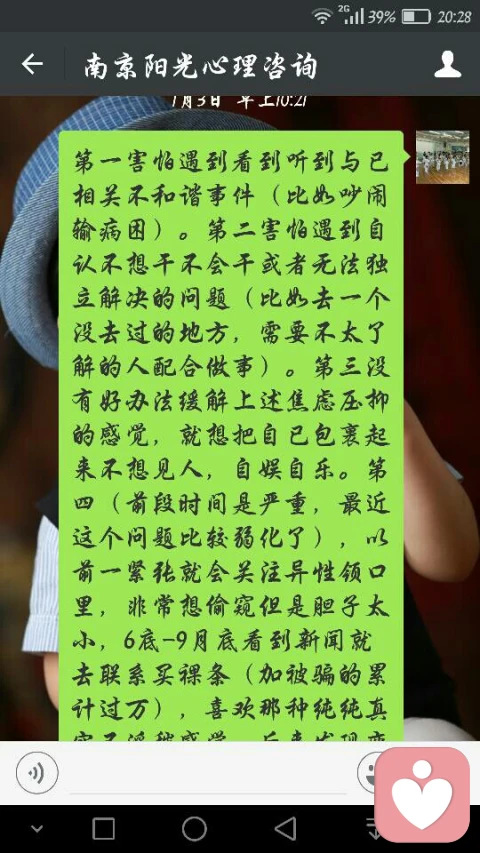 2G 39% 20:28
南京阳光心理咨询
1月3日 早上10:21
第一害怕遇到看到听到与己
相关不和谐事件（比如吵闹
输病困）。第二害怕遇到自
认不想干不会干或者无法独
立解决的问题（比如去一个
没去过的地方，需要不太了
解的人配合做事）。第三没
有好办法缓解上述焦虑压抑
的感觉，就想把自己包裹起
来不想见人，自娱自乐。第
四（前段时间是严重，最近
这个问题比较弱化了），以
前一紧张就会关注异性领口
里，非常想偷窥但是胆子太
小，6底-9月底看到新闻就
去联系买裸条（加被骗的累
计过万），喜欢那种纯纯真